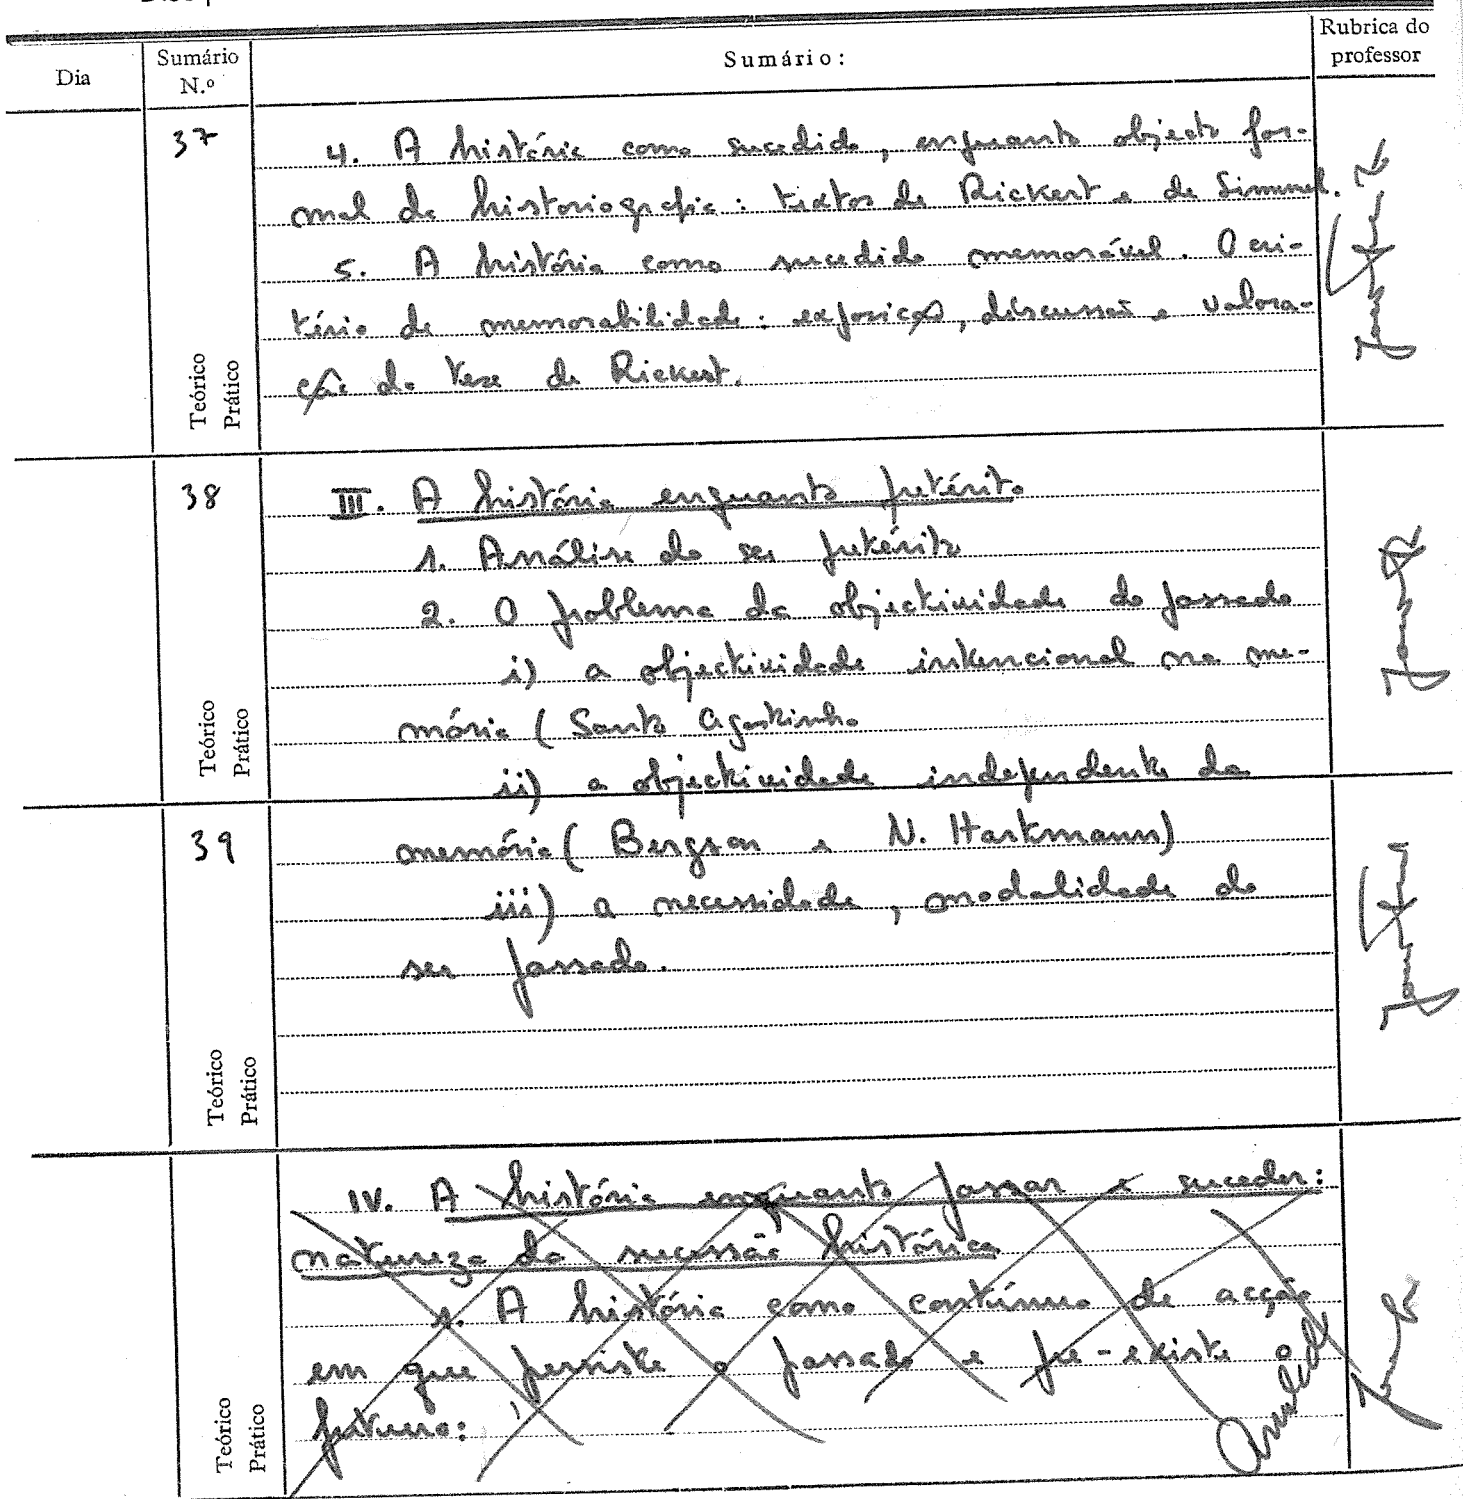 Dia
Sumário N.º
Sumário:
Rubrica do professor
37
4. A história como sucedido, enquanto objecto for-
mal da historiografia: textos de Rickert e de Simmel.
5. A história como sucedido memorável. O cri-
tério de memorabilidade: exposição, discussão e valora-
ção da tese de Rickert.
Teórico
Prático
38
III. A história enquanto pretérito
1. Análise do ser pretérito
2. O problema da objectividade do passado
i) a objectividade intencional na me-
mória (Santo Agostinho
ii) a objectividade independente da
Teórico
Prático
39
memória (Bergson e N. Hartmann)
iii) a necessidade, modalidade do
ser passado.
Teórico
Prático
IV. A história enquanto passar e suceder:
natureza da sucessão histórica
1. A história como contínuo de acção
em que persiste o passado e pre-existe o
futuro:
Teórico
Prático